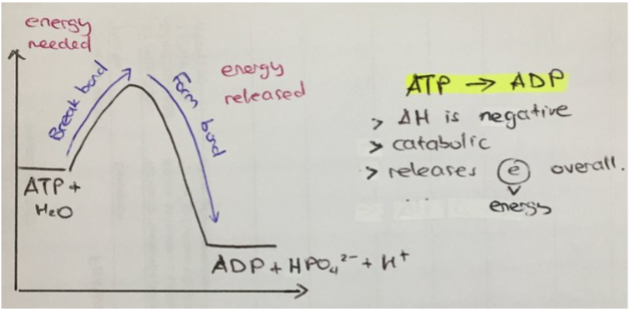 energy
needed
Break bond
Form bond
energy
released
ATP +
H₂O
ADP + HPO₄²⁻ + H⁺
ATP → ADP
> ΔH is negative
> catabolic
> releases e overall.
energy